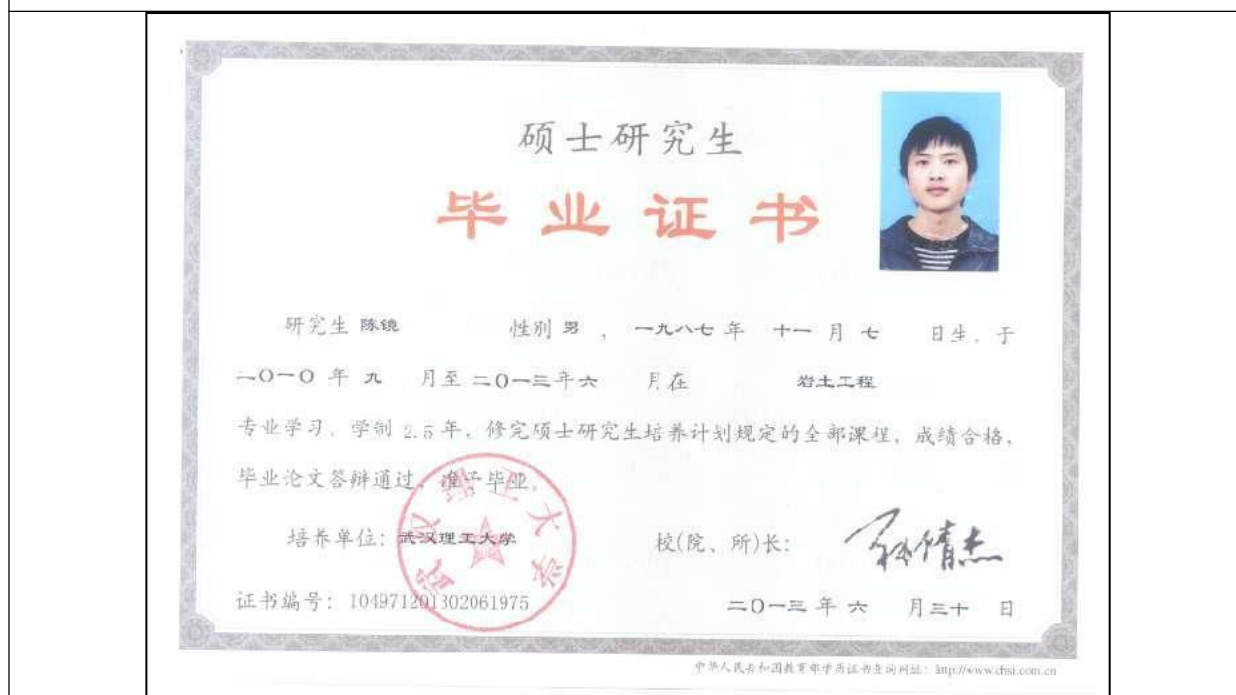 硕士研究生
毕业证书
研究生 陈镜 性别 男 , 一九八七 年 十一 月 七 日生, 于
二〇一〇 年 九 月至 二〇一三年六 月在 岩土工程
专业学习, 学制 2.5 年, 修完硕士研究生培养计划规定的全部课程, 成绩合格,
毕业论文答辩通过, 准予毕业。
培养单位: 武汉理工大学 校(院、所)长:
武汉理工大学
证书编号: 104971201302061975 二〇一三 年 六 月三十 日
中华人民共和国教育部学历证书查询网址: http://www.chsi.com.cn